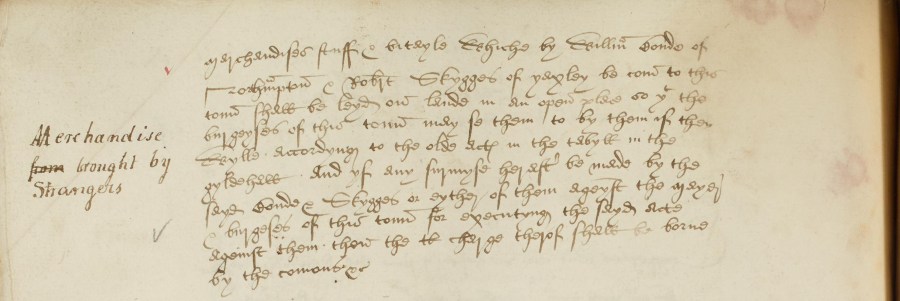 Merchandise
from brought by
Strangers
merchandises stuff & vitayle Whiche by Willm̃ Bonde of
Northmpton & Robt̃ Skygges of yaxley be com̃ to this
toun̄ shall be leyd on lande in an open place so yt the
burgeyses of this toun̄ may se them to by them if they
Wylle accordyng to the olde acte in the tabyll in the
gyldehall. And yf any surmyse heraft be made by the
sayd Bonde & Skygges or eyther of them ageynst the mayer
& burgeses of this toun̄ for executyng the sayd acte
ageinst them then the charge therof shall be borne
by the comons &c